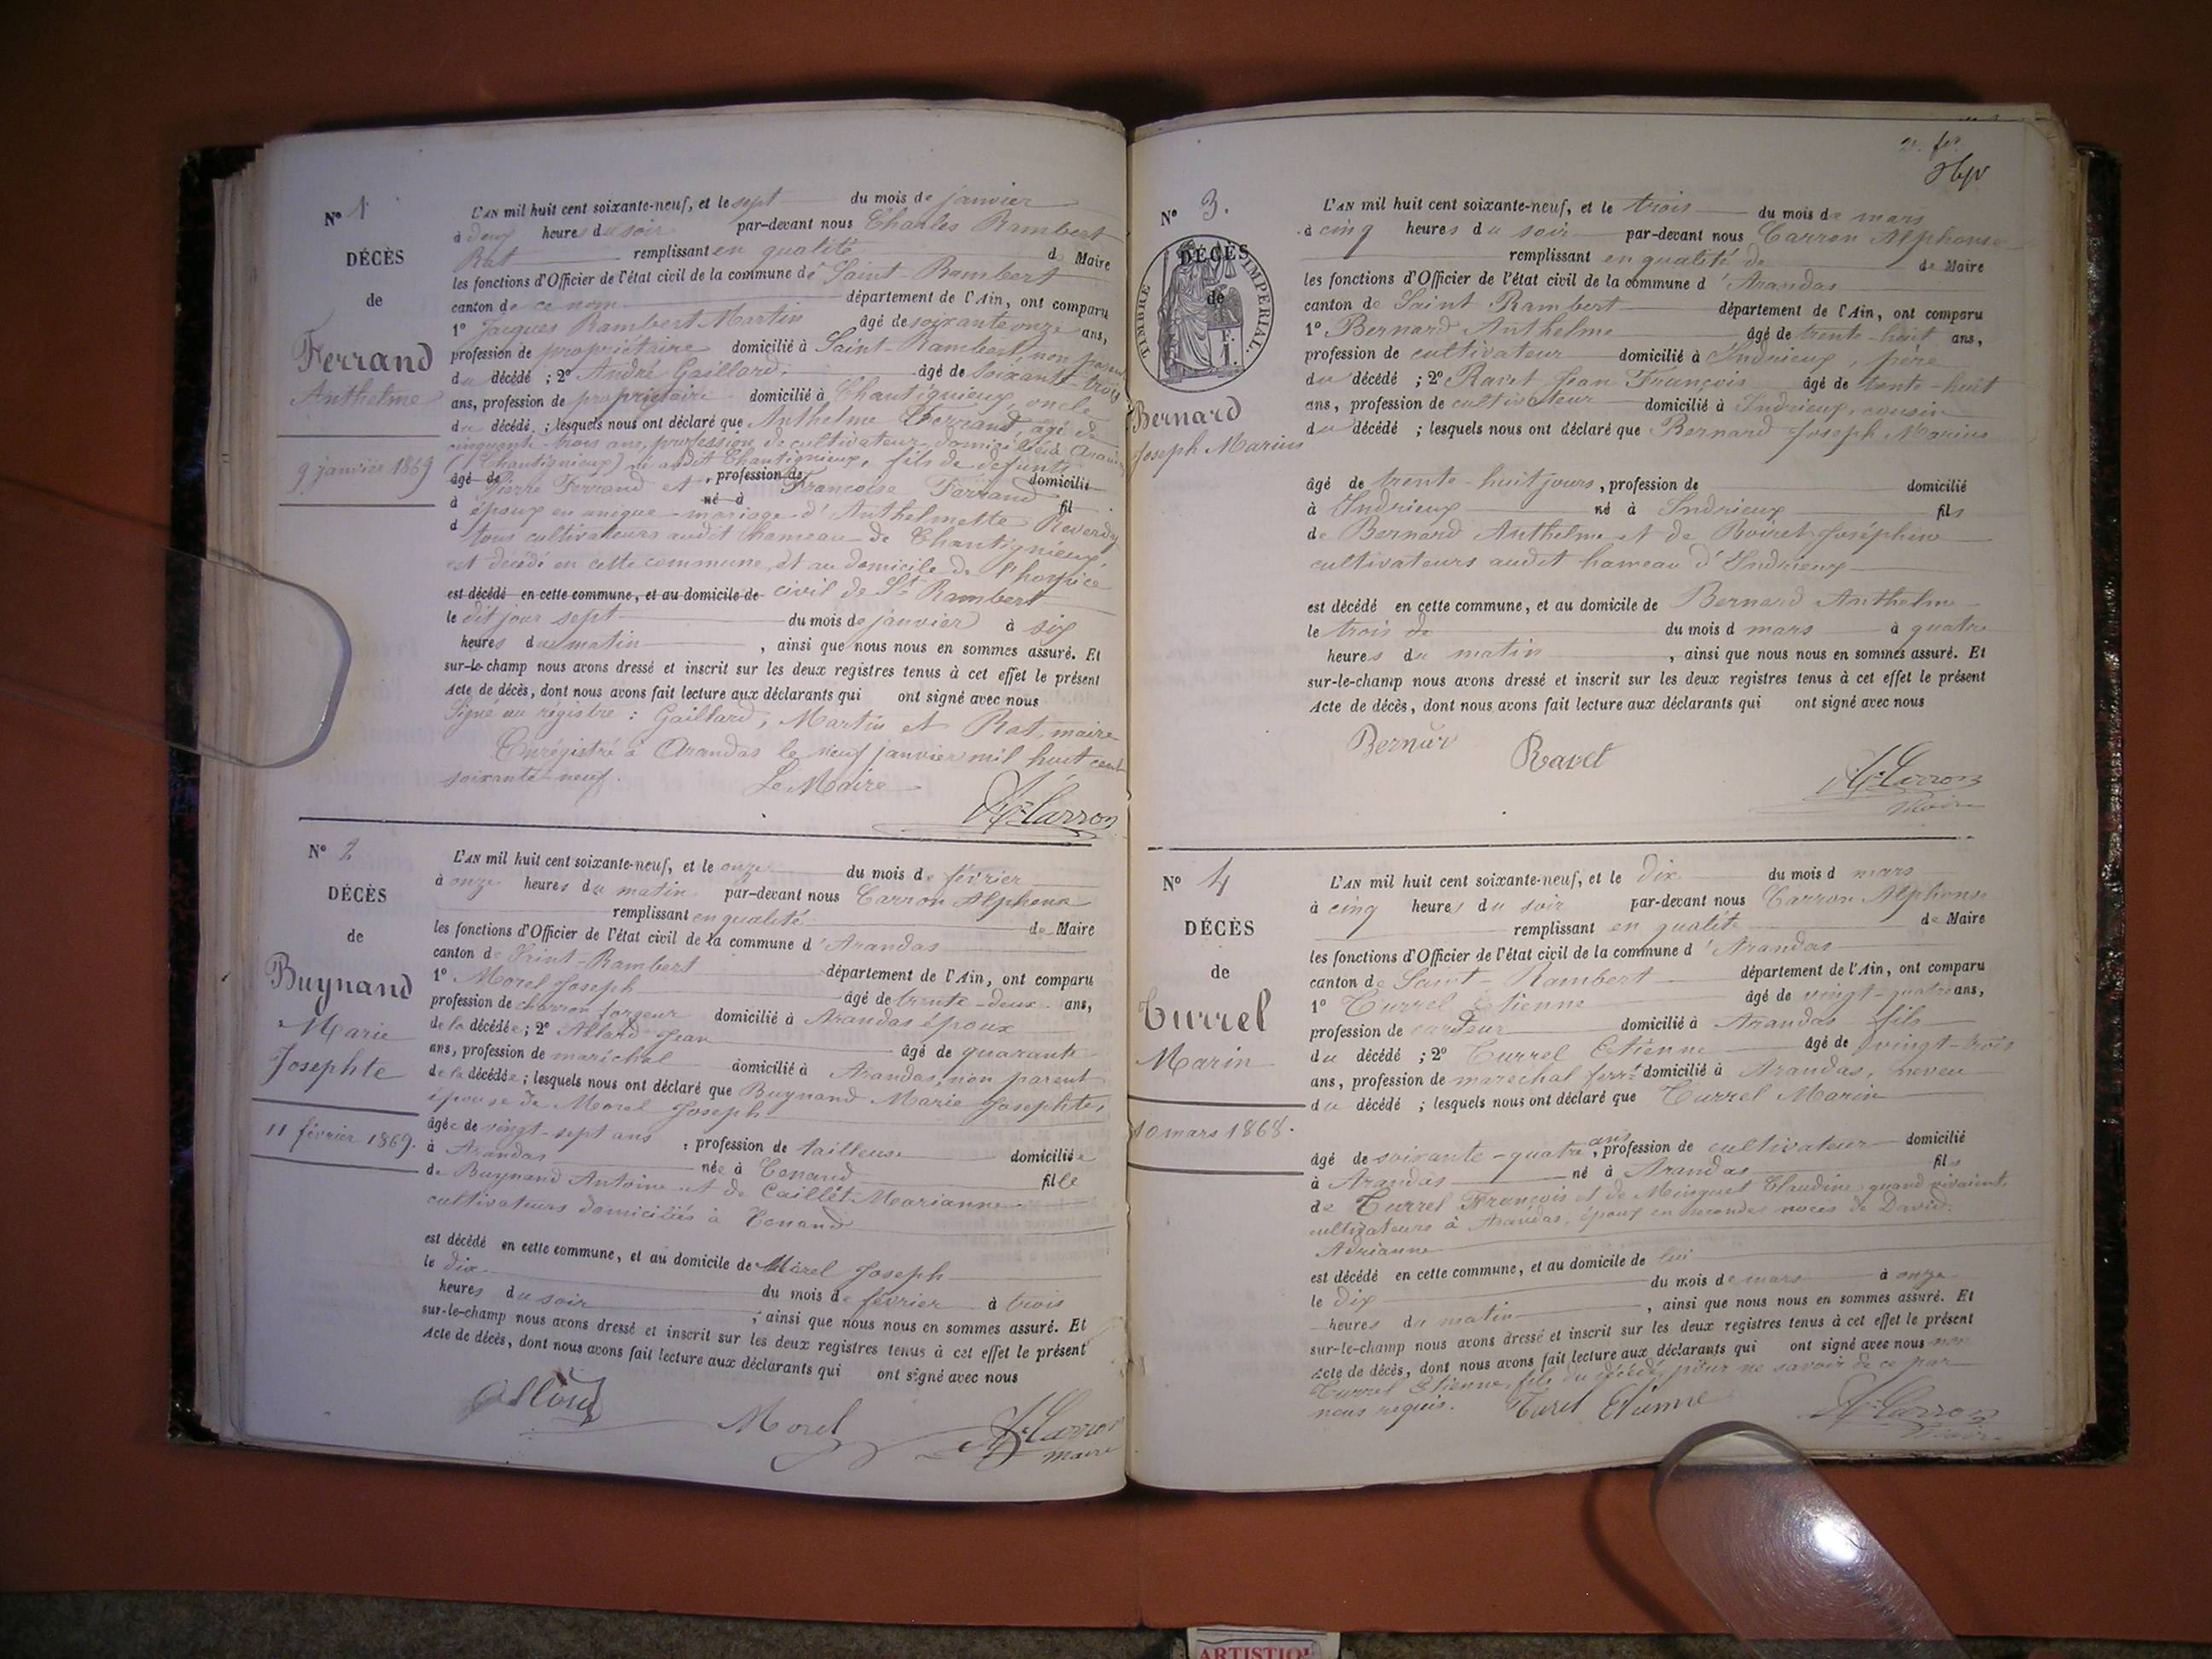 N° 1
DÉCÈS
de
Ferrand
Anthelme
9 janvier 1869
L'AN mil huit cent soixante-neuf, et le sept du mois de janvier
à deux heures du soir par-devant nous Charles Rambert
Rat remplissant en qualité de Maire
les fonctions d'Officier de l'état civil de la commune de Saint-Rambert
canton de ce nom département de l'Ain, ont comparu
1° Jacques Rambert Martin âgé de soixante onze ans,
profession de propriétaire domicilié à Saint-Rambert, non parent
du décédé ; 2° André Gaillard, âgé de soixante-trois
ans, profession de propriétaire domicilié à Chantignieux, oncle
du décédé ; lesquels nous ont déclaré que Anthelme Ferrand âgé de
cinquante-trois ans, profession de cultivateur domicilié à Arandas
(Chantignieux) né audit Chantignieux, fils de défunts
âgé de , profession de domicilié
Pierre Ferrand et Françoise Ferrand
à né à fil
époux en unique mariage d'Anthelmette Reverdy
d
tous cultivateurs audit hameau de Chantignieux
est décédé en cette commune, et au domicile de l'hospice
est décédé en cette commune, et au domicile de civil de St Rambert
le dit jour sept du mois de janvier à six
heures du matin , ainsi que nous nous en sommes assuré. Et
sur-le-champ nous avons dressé et inscrit sur les deux registres tenus à cet effet le présent
Acte de décès, dont nous avons fait lecture aux déclarants qui ont signé avec nous
Signé au régistre : Gaillard, Martin et Rat, maire
Enrégistré à Arandas le neuf janvier mil huit cent
soixante-neuf. Le Maire
A. Carron
N° 2
DÉCÈS
de
Buynand
Marie
Josephte
11 février 1869.
L'AN mil huit cent soixante-neuf, et le onze du mois de février
à onze heures du matin par-devant nous Carron Alphonse
remplissant en qualité de Maire
les fonctions d'Officier de l'état civil de la commune d'Arandas
canton de Saint-Rambert département de l'Ain, ont comparu
1° Morel Joseph âgé de trente-deux ans,
profession de charron forgeur domicilié à Arandas époux
de la décédée ; 2° Allard Jean âgé de quarante
ans, profession de maréchal domicilié à Arandas, non parent
de la décédée ; lesquels nous ont déclaré que Buynand Marie Josephte,
épouse de Morel Joseph
âgée de vingt-sept ans , profession de tailleuse domiciliée
à Arandas née à Conand fille
de Buynand Antoine et de Caillet Marianne
cultivateurs domiciliés à Conand
est décédé en cette commune, et au domicile de Morel Joseph
le dix du mois de février à trois
heures du soir , ainsi que nous nous en sommes assuré. Et
sur-le-champ nous avons dressé et inscrit sur les deux registres tenus à cet effet le présent
Acte de décès, dont nous avons fait lecture aux déclarants qui ont signé avec nous
Morel A. Carron
maire
N° 3.
TIMBRE IMPÉRIAL.
DÉCÈS
de
F.
1.
Bernard
Joseph Marius
L'AN mil huit cent soixante-neuf, et le trois du mois de mars
à cinq heures du soir par-devant nous Carron Alphonse
remplissant en qualité de de Maire
les fonctions d'Officier de l'état civil de la commune d'Arandas
canton de Saint Rambert département de l'Ain, ont comparu
1° Bernard Anthelme âgé de trente-huit ans,
profession de cultivateur domicilié à Indrieux, père
du décédé ; 2° Ravet Jean François âgé de trente-huit
ans, profession de cultivateur domicilié à Indrieux, cousin
du décédé ; lesquels nous ont déclaré que Bernard Joseph Marius
âgé de trente-huit jours , profession de domicilié
à Indrieux né à Indrieux fils
de Bernard Anthelme et de Roiret Joséphine
cultivateurs audit hameau d'Indrieux
est décédé en cette commune, et au domicile de Bernard Anthelme
le trois de du mois d mars à quatre
heures du matin , ainsi que nous nous en sommes assuré. Et
sur-le-champ nous avons dressé et inscrit sur les deux registres tenus à cet effet le présent
Acte de décès, dont nous avons fait lecture aux déclarants qui ont signé avec nous
Ravet A. Carron
Maire
N° 4
DÉCÈS
de
Turrel
Marin
10 mars 1868.
L'AN mil huit cent soixante-neuf, et le dix du mois d mars
à cinq heures du soir par-devant nous Carron Alphonse
remplissant en qualité de Maire
les fonctions d'Officier de l'état civil de la commune d'Arandas
canton de Saint-Rambert département de l'Ain, ont comparu
1° Turrel Etienne âgé de vingt-quatre ans,
profession de domicilié à Arandas fils
du décédé ; 2° Turrel Etienne âgé de vingt-trois
ans, profession de maréchal ferrt domicilié à Arandas, neveu
du décédé ; lesquels nous ont déclaré que Turrel Marin
âgé de soixante-quatre ans, profession de cultivateur domicilié
à Arandas né à Arandas fils
de Turrel François et de Minguet Claudine quand vivaient
cultivateurs à Arandas, époux en secondes noces de David
Adrianne
est décédé en cette commune, et au domicile de lui
le dix du mois de mars à onze
heures du matin , ainsi que nous nous en sommes assuré. Et
sur-le-champ nous avons dressé et inscrit sur les deux registres tenus à cet effet le présent
Acte de décès, dont nous avons fait lecture aux déclarants qui ont signé avec nous non
Turrel Etienne, fils du décédé, pour ne savoir de ce par
nous requis. Turel Etienne A. Carron
ARTISTIQU